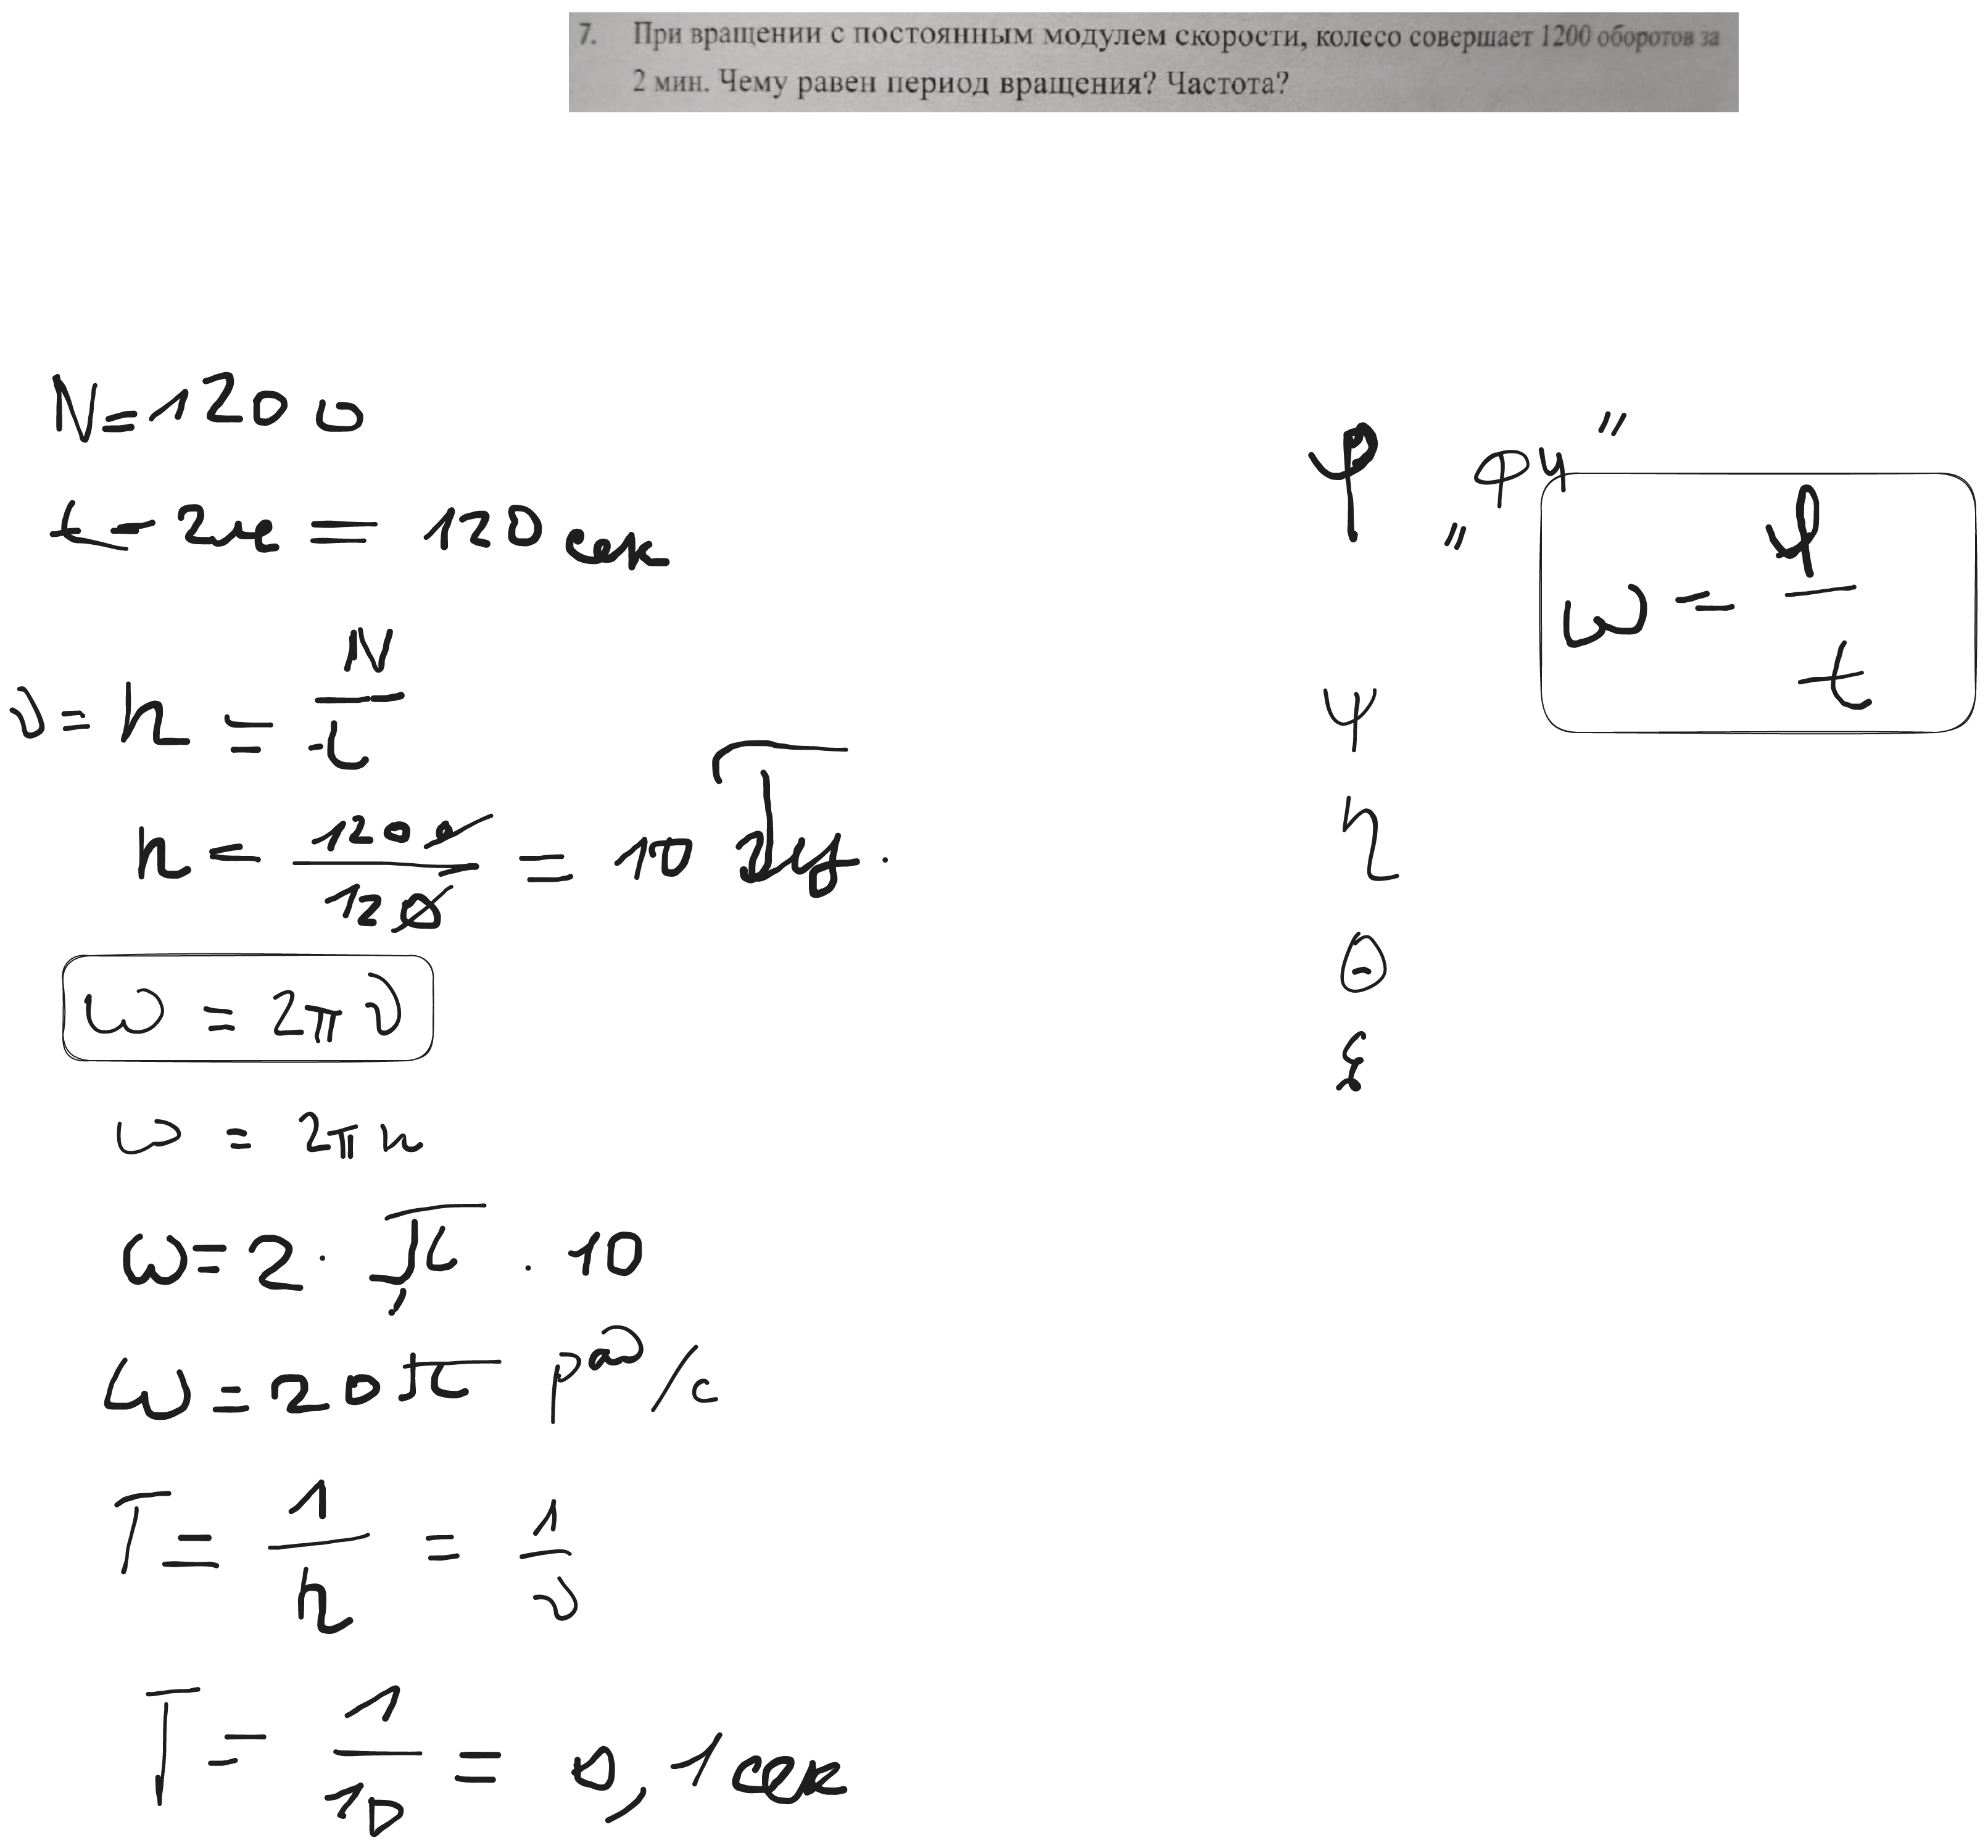 7. При вращении с постоянным модулем скорости, колесо совершает 1200 оборотов за
2 мин. Чему равен период вращения? Частота?
N=1200
t = 2м = 120 сек
ν = n = N/t
n = 1200/120 = 10 Гц.
ω = 2πν
ω = 2πn
ω = 2 · π · 10
ω = 20π рад/с
T = 1/n = 1/ν
T = 1/10 = 0,1 сек
φ „фи"
ω = φ/t
ψ
η
θ
ξ